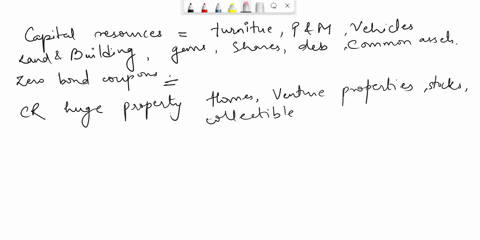 Capital resources = furniture, P&M, Vehicles
Land & Building, gems, Shares, deb, Common assets.
Zero bond coupons :=
CR huge property Homes, Venture properties, stocks,
collectible